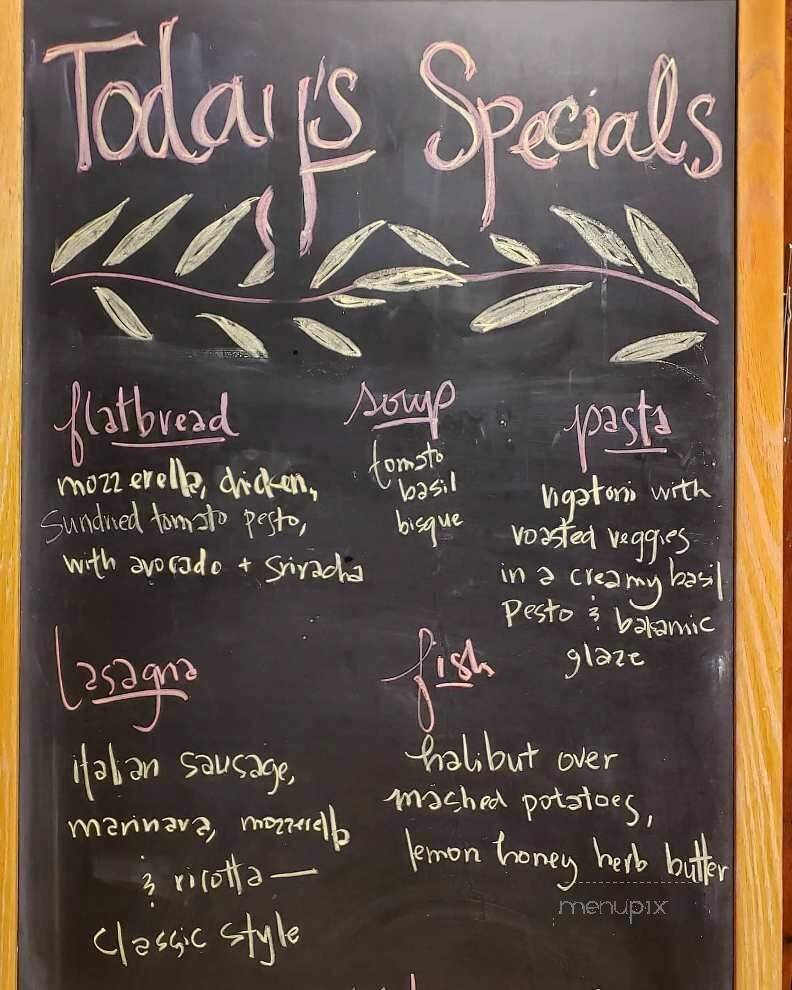 Today's Specials
flatbread
mozzerella, chicken,
sundried tomato pesto,
with avocado + sriracha
soup
tomato
basil
bisque
pasta
rigatoni with
roasted veggies
in a creamy basil
pesto & balsamic
glaze
lasagna
italian sausage,
marinara, mozzerella
& ricotta —
classic style
fish
halibut over
mashed potatoes,
lemon honey herb butter
menupix